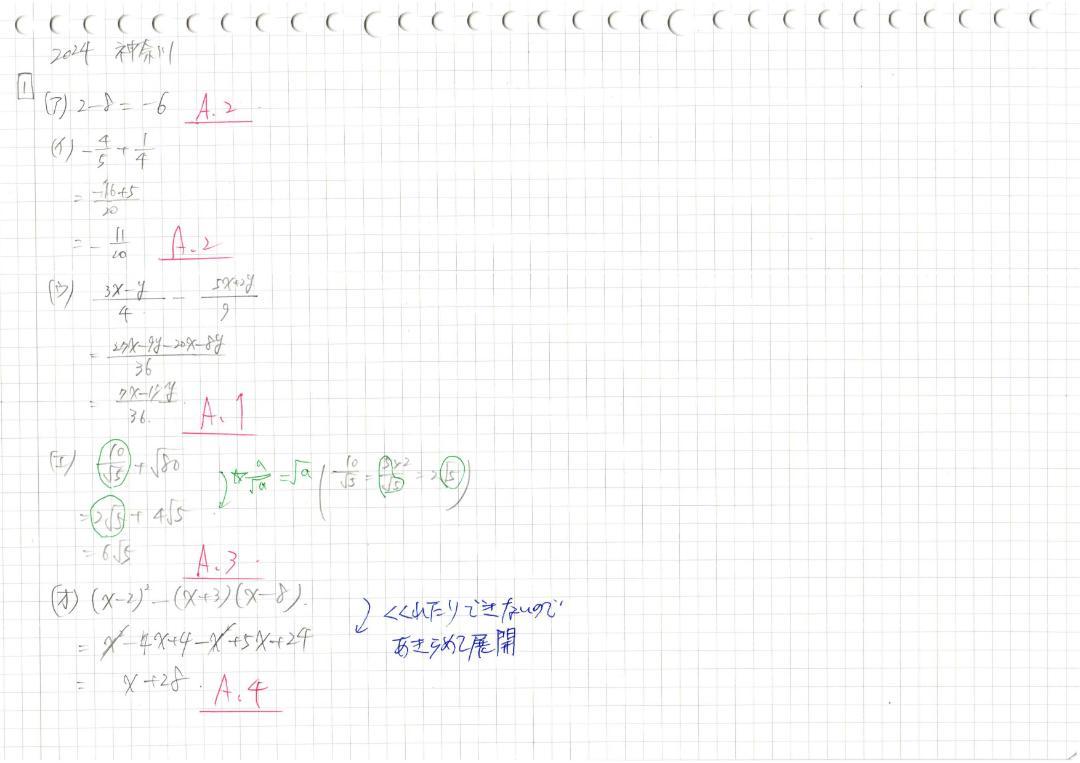 2024 神奈川
1
(ア) 2-8 = -6 A.2
(イ) -4/5 + 1/4
= -16+5/20
= -11/20 A.2
(ウ) 3x-y/4 - 5x+2y/9
= 27x-9y-20x-8y/36
= 7x-17y/36 A.1
(エ) 10/√5 + √80 ☆ a/√a = √a ( 10/√5 = 5×2/√5 = 2√5 )
= 2√5 + 4√5
= 6√5 A.3
(オ) (x-2)² - (x+3)(x-8)
= x²-4x+4-x²+5x+24
= x+28 A.4
くくれたりできないので
あきらめて展開